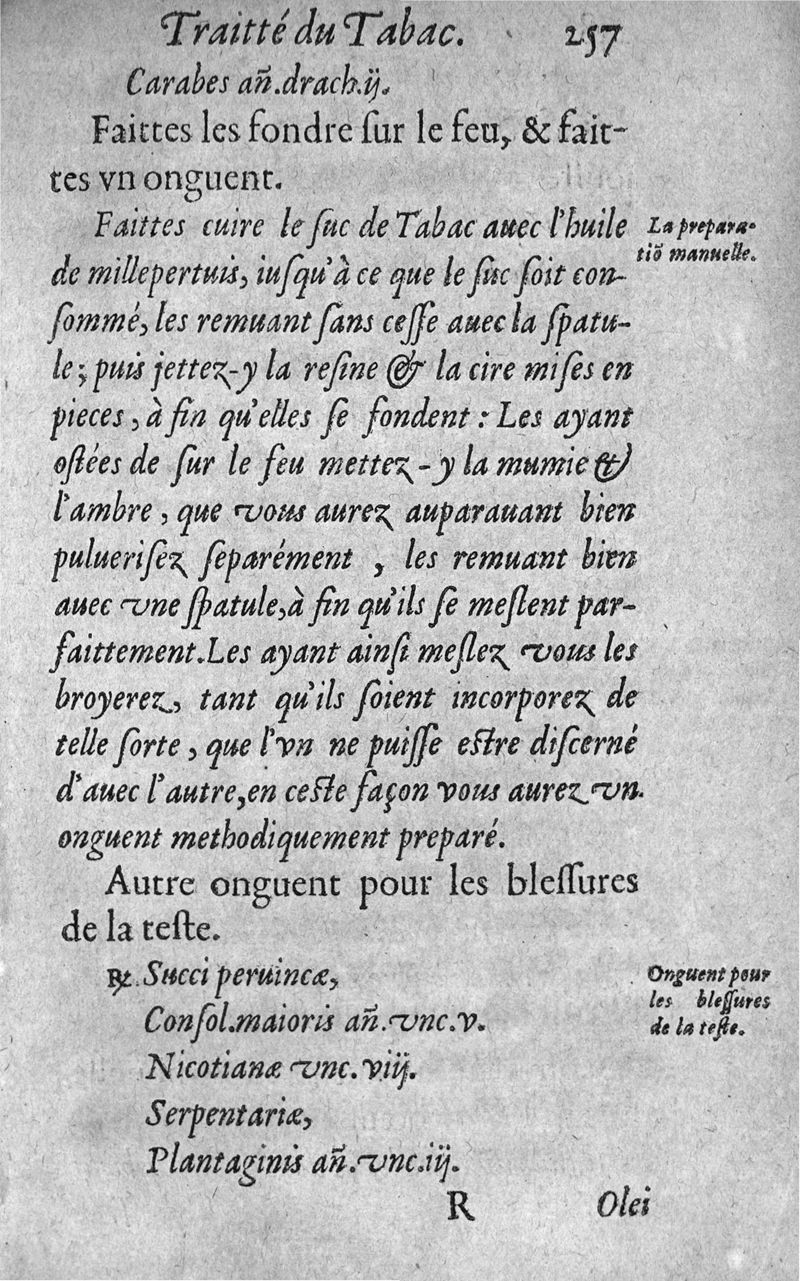 Traitté du Tabac. 257
Carabes an̄.drach.ij.
Faittes les fondre ſur le feu, & fait-
tes vn onguent.
Faittes cuire le ſuc de Tabac auec l'huile
La prepara-
tiõ manuelle.
de millepertuis, iuſqu'à ce que le ſuc ſoit con-
ſommé, les remuant ſans ceſſe auec la ſpatu-
le; puis jettez-y la reſine & la cire miſes en
pieces, à fin qu'elles ſe fondent : Les ayant
oſtées de ſur le feu mettez-y la mumie &
l'ambre, que vous aurez auparauant bien
pulueriſez ſeparément, les remuant bien
auec vne ſpatule, à fin qu'ils ſe meſlent par-
faittement. Les ayant ainſi meſlez vous les
broyerez, tant qu'ils ſoient incorporez de
telle ſorte, que l'vn ne puiſſe eſtre diſcerné
d'auec l'autre, en ceſte façon vous aurez vn
onguent methodiquement preparé.
Autre onguent pour les bleſſures
de la teſte.
℞. Succi peruincæ,
Onguent pour
les bleſſures
de la teſte.
Conſol.maioris an̄.vnc.v.
Nicotianæ vnc.viij.
Serpentariæ,
Plantaginis an̄.vnc.iij.
R Olei